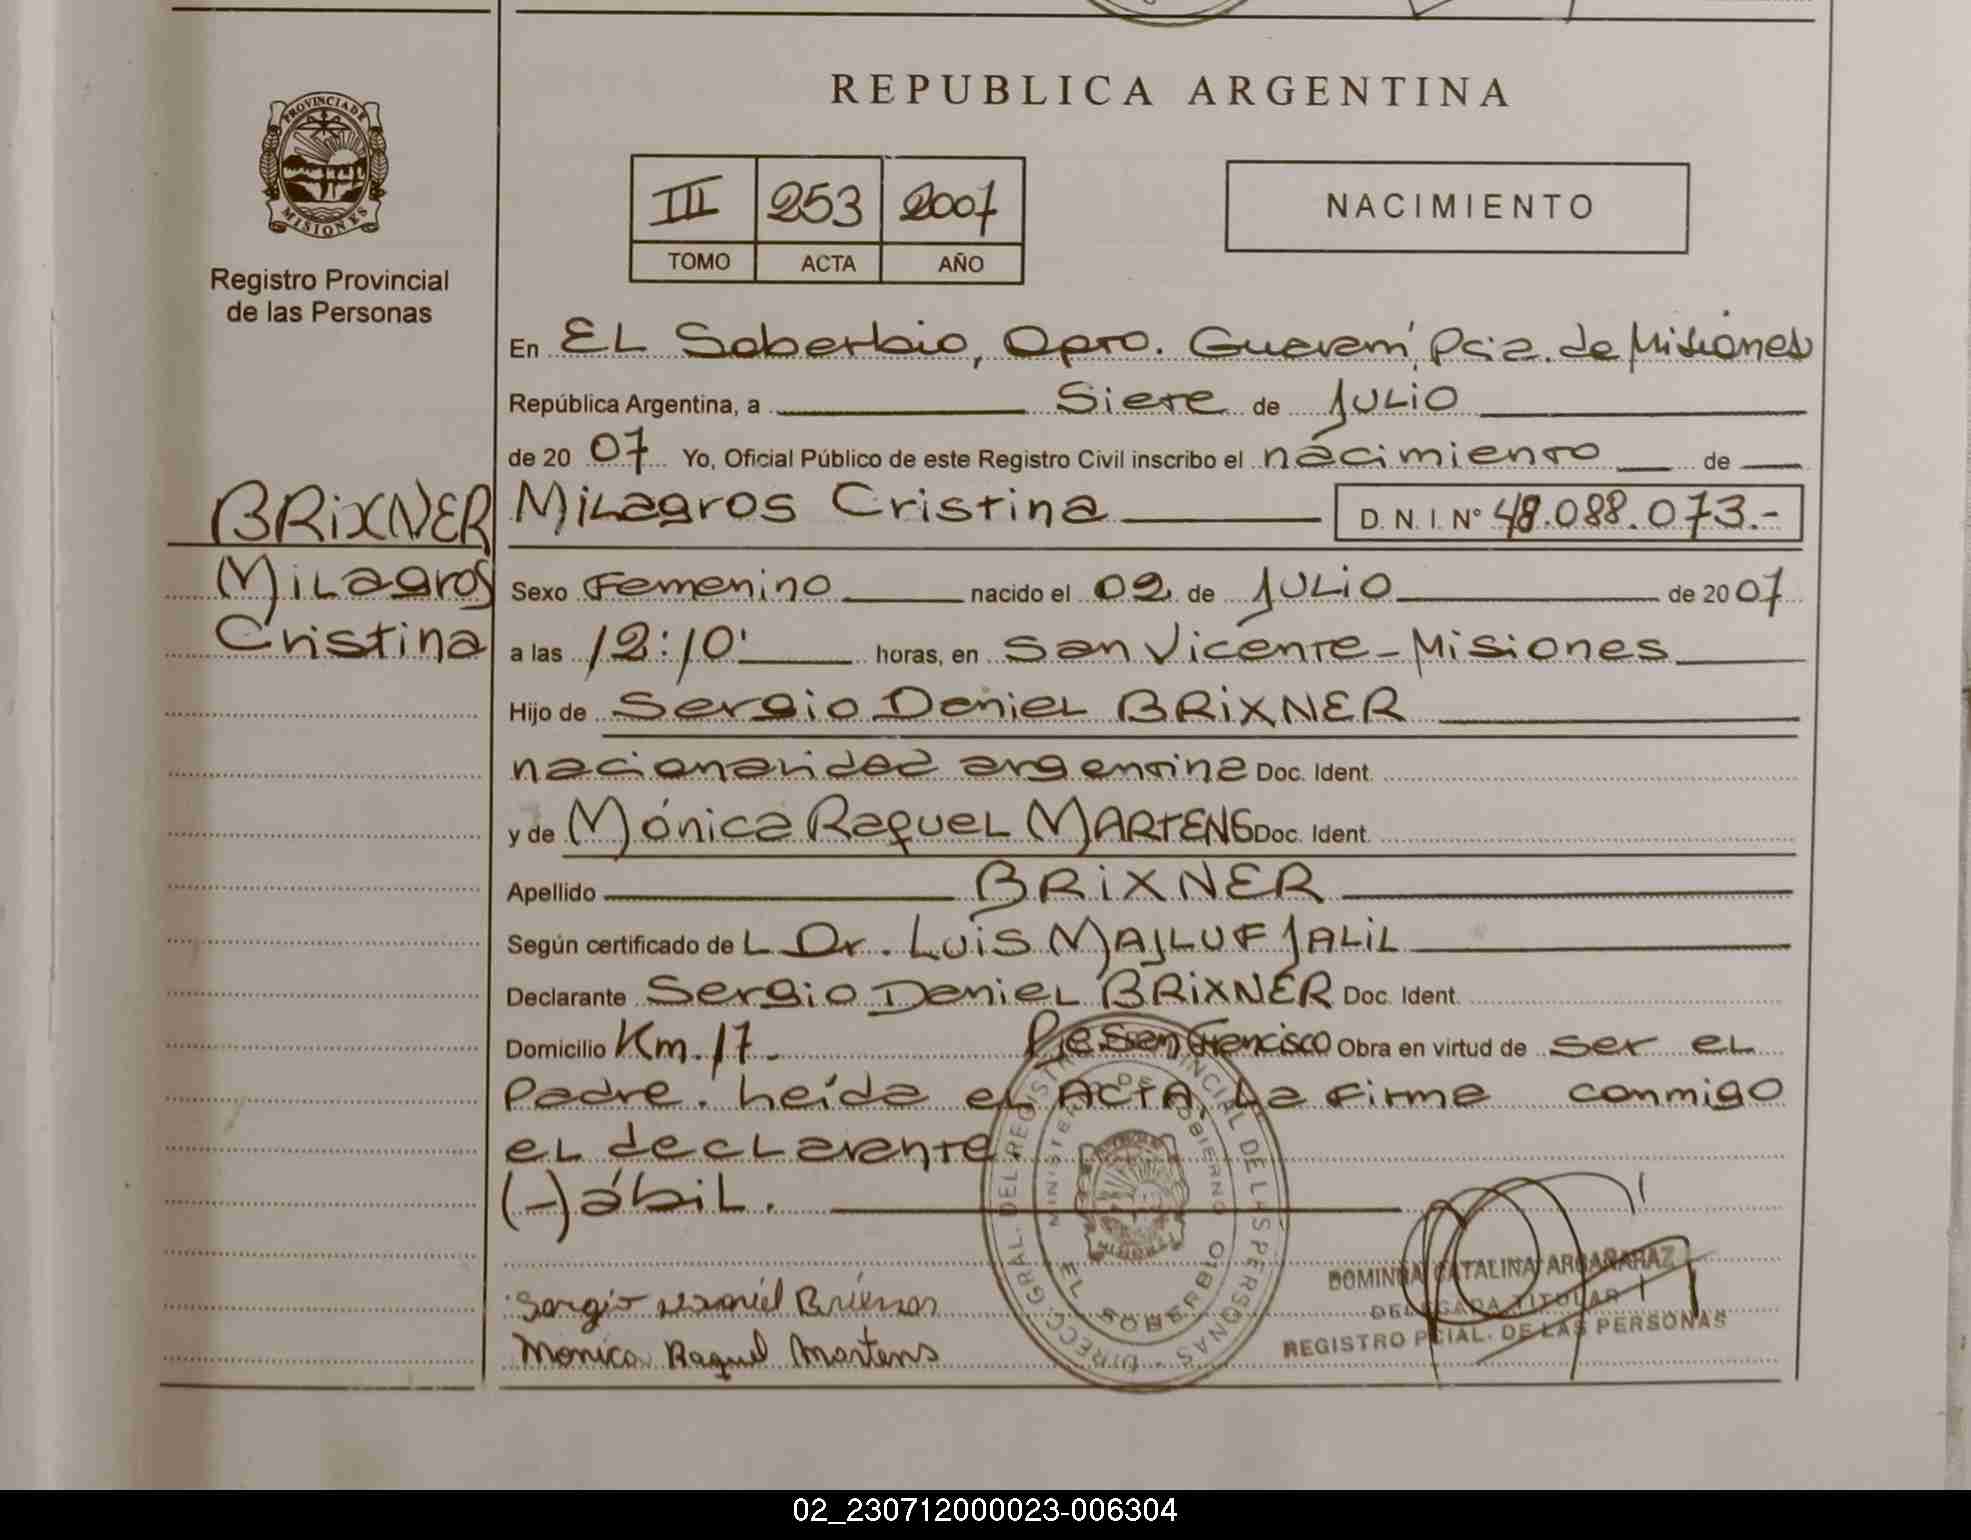 REPUBLICA ARGENTINA
PROVINCIA DE
MISIONES
Registro Provincial
de las Personas
III 253 2007
TOMO ACTA AÑO
NACIMIENTO
En EL Soberbio, Dpto. Guaraní, Pcia. de Misiones
República Argentina, a Siete de JULIO
de 2007 Yo, Oficial Público de este Registro Civil inscribo el nacimiento de
BRiXNER
Milagros
Cristina
Milagros Cristina D. N. I. Nº 48.088.073.-
Sexo Femenino nacido el 02 de JULiO de 2007
a las 12:10' horas, en San Vicente - Misiones
Hijo de Sergio Daniel BRiXNER
nacionalidad argentina Doc. Ident.
y de Mónica Raquel MARTENS Doc. Ident.
Apellido BRiXNER
Según certificado deL Dr. Luis MAJLUF JALiL
Declarante Sergio Daniel BRiXNER Doc. Ident.
Domicilio Km. 17. San Francisco Obra en virtud de ser el
Padre. Leída el ACTA, La firma conmigo
el declarante.
(-) ábil.
Sergio Daniel Brixner
Monica Raquel Martens
DIRECC. GRAL. DEL REGISTRO PROVINCIAL DE LAS PERSONAS
MINISTERIO DE GOBIERNO
EL SOBERBIO
MISIONES
CATALINA ARGAÑARAZ
DELEGADA TITULAR
REGISTRO PCIAL. DE LAS PERSONAS
02_230712000023-006304